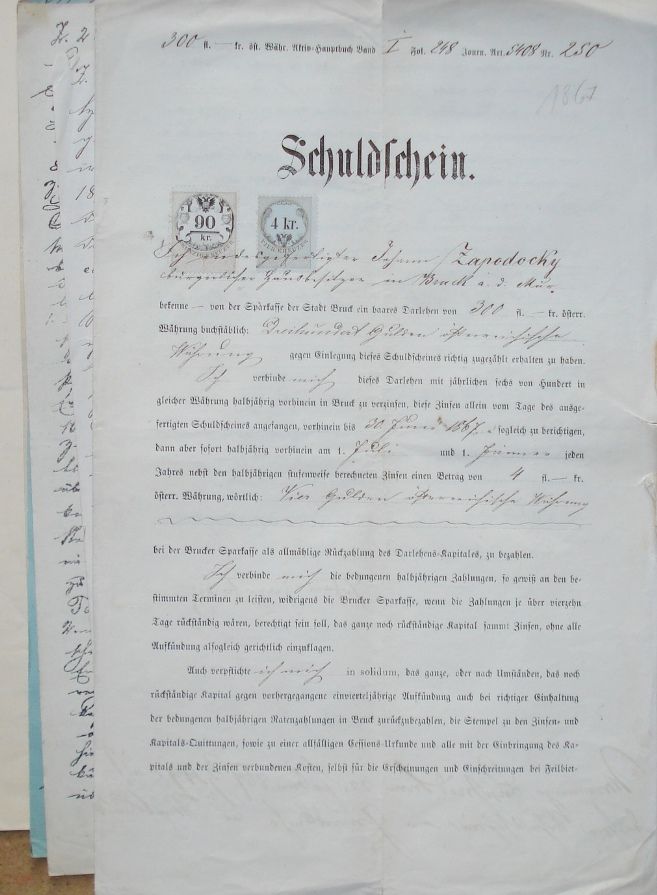 300 fl. — kr. öst. Währ. Aktiv-Hauptbuch Band I Fol. 248 Journ. Art. 5408 Nr. 250
1867
Schuldschein.
90 kr.
4 kr.
Ich endesgefertigter Johann Zapodocky
bürgerlicher Hausbesitzer in Bruck a. d. Mur
bekenne — von der Sparkasse der Stadt Bruck ein baares Darlehen von 300 fl. — kr. österr.
Währung buchstäblich: Dreihundert Gulden österreichische
Währung gegen Einlegung dieses Schuldscheines richtig zugezählt erhalten zu haben.
Ich verbinde mich dieses Darlehen mit jährlichen sechs von Hundert in
gleicher Währung halbjährig vorhinein in Bruck zu verzinsen, diese Zinsen allein vom Tage des ausge-
fertigten Schuldscheines angefangen, vorhinein bis 30 Juni 1867 sogleich zu berichtigen,
dann aber sofort halbjährig vorhinein am 1. Juli und 1. Jänner jeden
Jahres nebst den halbjährigen stufenweise berechneten Zinsen einen Betrag von 4 fl. — kr.
österr. Währung, wörtlich: Vier Gulden österreichische Währung
bei der Brucker Sparkasse als allmählige Rückzahlung des Darlehens-Kapitales, zu bezahlen.
Ich verbinde mich die bedungenen halbjährigen Zahlungen, so gewiß an den be-
stimmten Terminen zu leisten, widrigens die Brucker Sparkasse, wenn die Zahlungen je über vierzehn
Tage rückständig wären, berechtigt sein soll, das ganze noch rückständige Kapital sammt Zinsen, ohne alle
Aufkündung alsogleich gerichtlich einzuklagen.
Auch verpflichte ich mich in solidum, das ganze, oder nach Umständen, das noch
rückständige Kapital gegen vorhergegangene einvierteljährige Aufkündung auch bei richtiger Einhaltung
der bedungenen halbjährigen Ratenzahlungen in Bruck zurückzubezahlen, die Stempel zu den Zinsen- und
Kapitals-Quittungen, sowie zu einer allfälligen Cessions-Urkunde und alle mit der Einbringung des Ka-
pitals und der Zinsen verbundenen Kosten, selbst für die Erscheinungen und Einschreitungen bei Feilbiet-